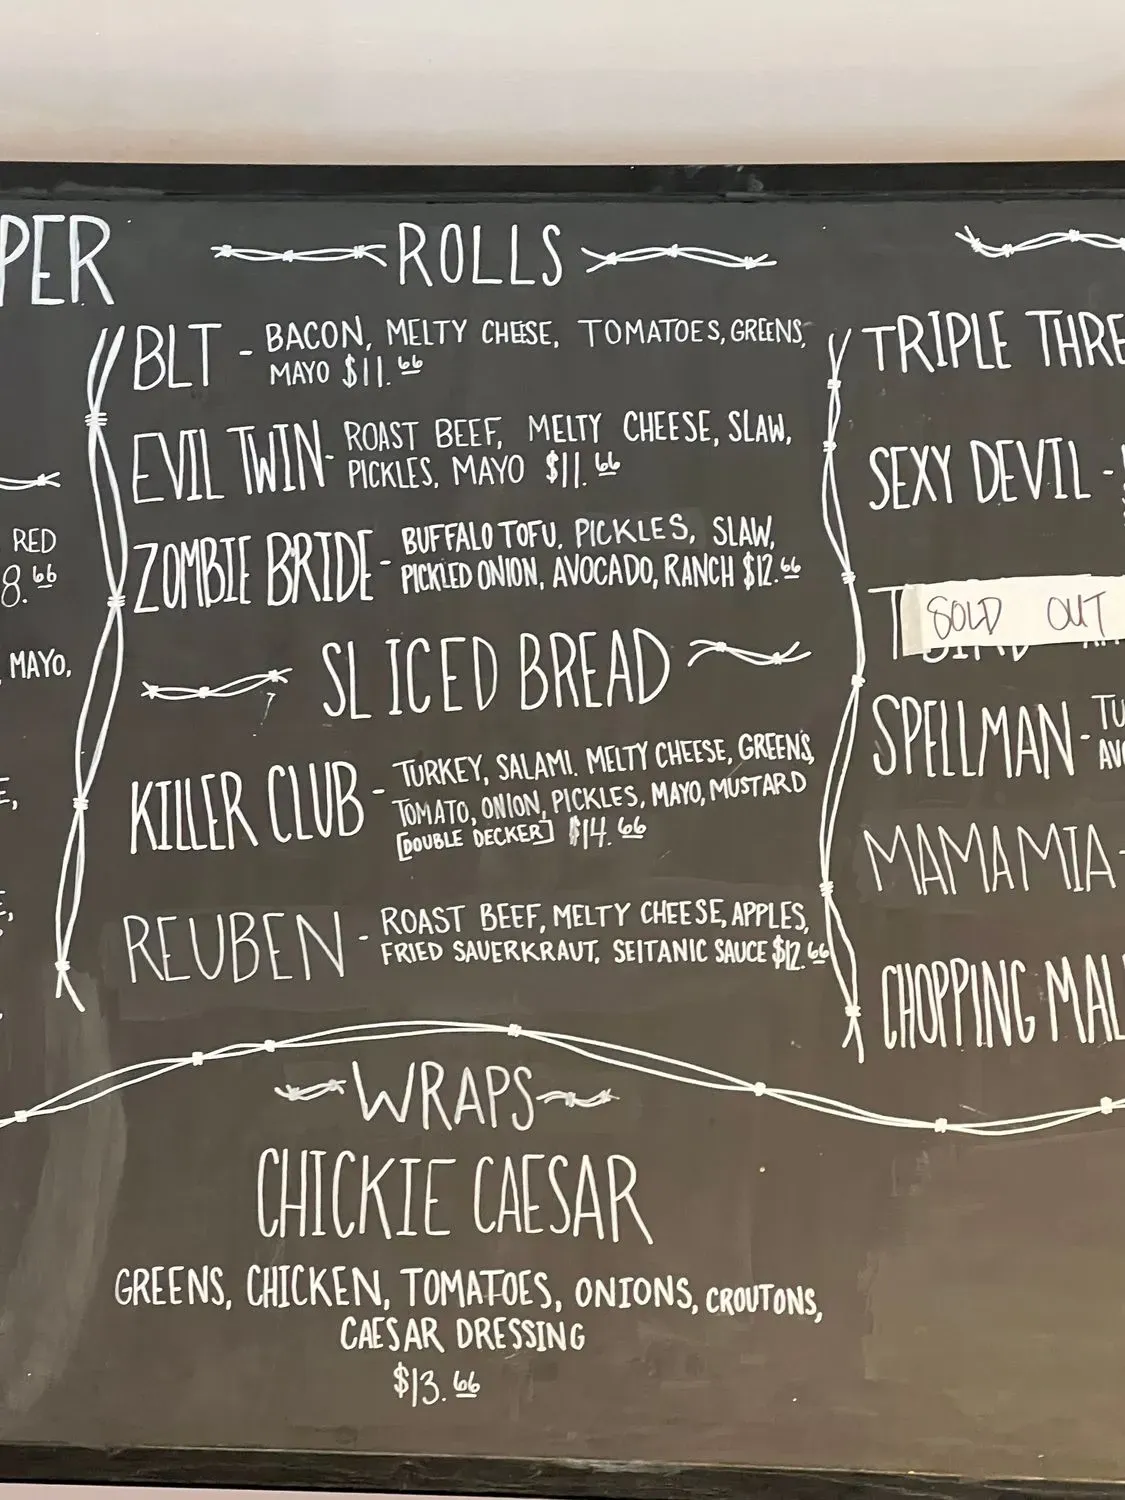 PER
RED
8.66
MAYO,
ROLLS
BLT - BACON, MELTY CHEESE, TOMATOES, GREENS,
MAYO $11.66
EVIL TWIN - ROAST BEEF, MELTY CHEESE, SLAW,
PICKLES, MAYO $11.66
ZOMBIE BRIDE - BUFFALO TOFU, PICKLES, SLAW,
PICKLED ONION, AVOCADO, RANCH $12.66
SLICED BREAD
KILLER CLUB - TURKEY, SALAMI. MELTY CHEESE, GREENS,
TOMATO, ONION, PICKLES, MAYO, MUSTARD
[DOUBLE DECKER] $14.66
REUBEN - ROAST BEEF, MELTY CHEESE, APPLES,
FRIED SAUERKRAUT, SEITANIC SAUCE $12.66
TRIPLE THRE
SEXY DEVIL -
SOLD OUT
SPELLMAN - TU
AVO
MAMA MIA -
CHOPPING MAL
WRAPS
CHICKIE CAESAR
GREENS, CHICKEN, TOMATOES, ONIONS, CROUTONS,
CAESAR DRESSING
$13.66